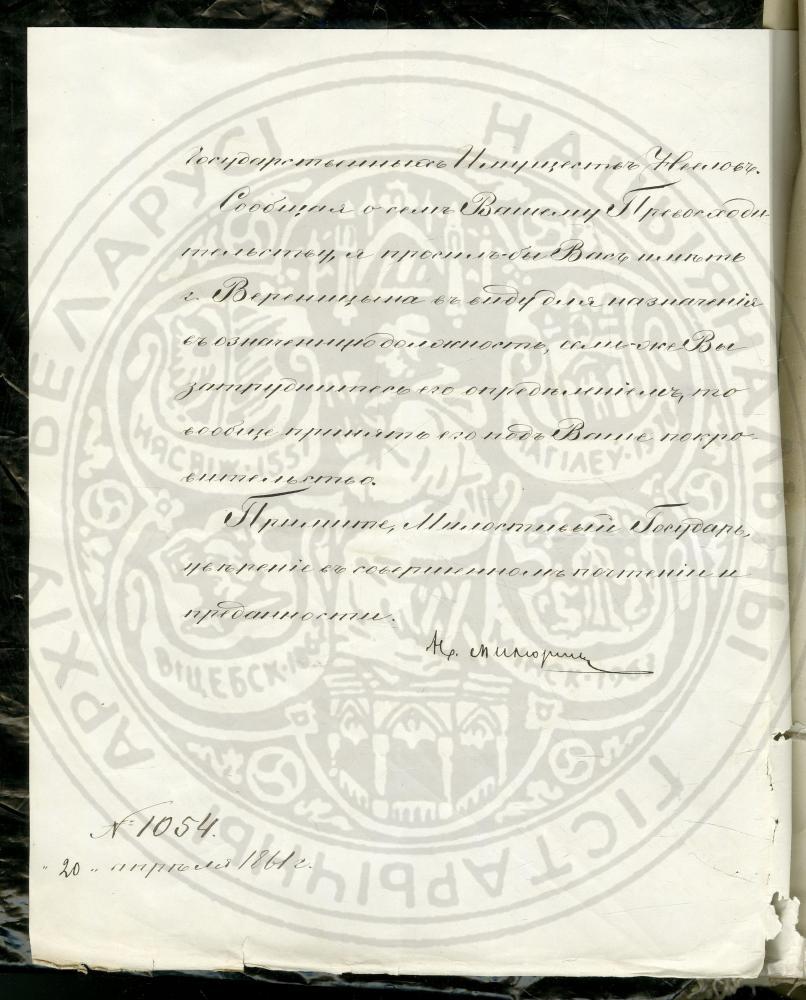 Государственныхъ Имуществъ Нееловъ.
Сообщая о семъ Вашему Превосходи-
тельству, я просилъ-бы Васъ имѣть
г. Вереницына въ виду для назначенія
въ означенную должность, если-же Вы
затруднитесь его опредѣленіемъ, то
вообще принять его подъ Ваше покро-
вительство.
Примите, Милостивый Государь,
увѣреніе въ совершенномъ почтеніи и
преданности.
Н. Милютинъ
№ 1054.
"20" апрѣля 1861 г.
АРХІЎ БЕЛАРУСІ
НАЦЫЯНАЛЬНЫ
ГІСТАРЫЧНЫ